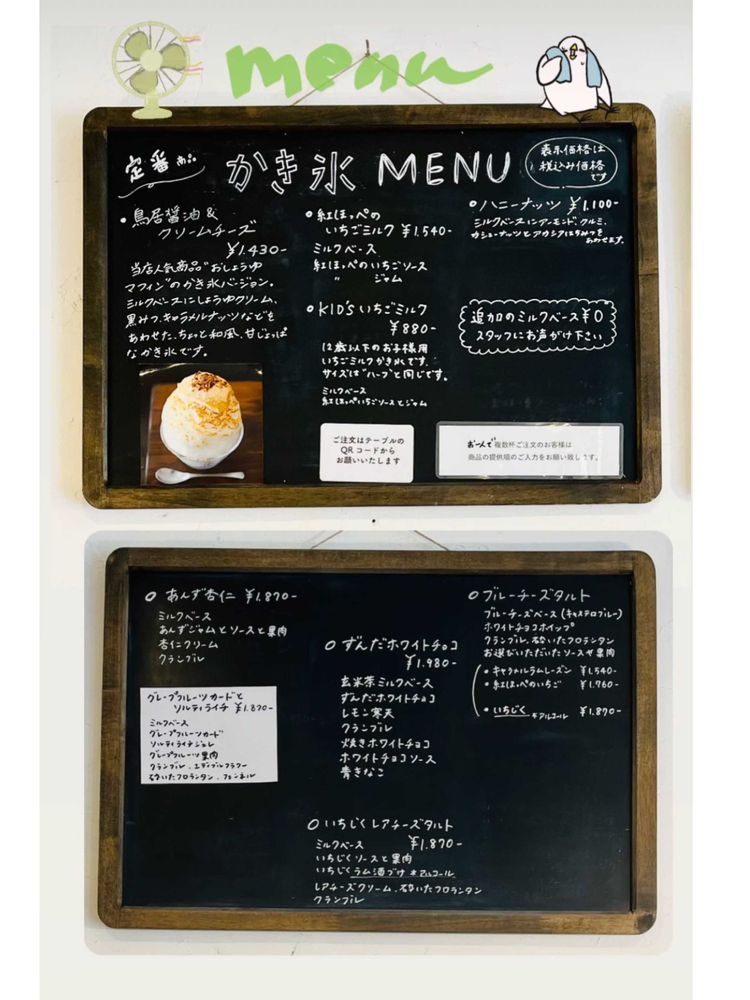 menu
定番商品
かき氷 MENU
表示価格は
税込み価格
です
• 鳥居醤油&
クリームチーズ
¥1.430-
当店人気商品"おしょうゆ
マフィン"のかき氷バージョン。
ミルクベースにしょうゆクリーム、
黒みつ、キャラメルナッツなどを
あわせた、ちょっと和風、甘じょっぱ
なかき氷です。
• 紅ほっぺの
いちごミルク ¥1.540-
ミルクベース
紅ほっぺのいちごソース
ジャム
• KID's いちごミルク
¥880-
12歳以下のお子様用
いちごミルクかき氷です。
サイズは"ハーフ"と同じです。
ミルクベース
紅ほっぺいちごソースとジャム
• ハニーナッツ ¥1.100-
ミルクベースにアーモンド、クルミ、
カシューナッツとアカシアはちみつを
あわせます。
追加のミルクベース¥0
スタッフにお声がけ下さい
ご注文はテーブルの
QRコードから
お願いいたします
お一人で複数杯ご注文のお客様は
商品の提供順のご入力をお願い致します。
○ あんず杏仁 ¥1.870-
ミルクベース
あんずジャムとソースと果肉
杏仁クリーム
クランブル
グレープフルーツカードと
ソルティライチ ¥1.870-
ミルクベース
グレープフルーツカード
ソルティライチジュレ
グレープフルーツ果肉
クランブル、エディブルフラワー
砕いたフロランタン、フェンネル
○ ずんだホワイトチョコ
¥1.980-
玄米茶ミルクベース
ずんだホワイトチョコ
レモン寒天
クランブル
焼きホワイトチョコ
ホワイトチョコソース
青きなこ
○ いちじくレアチーズタルト
ミルクベース ¥1.870-
いちじくソースと果肉
いちじくラム酒づけ *アルコール
レアチーズクリーム、砕いたフロランタン
クランブル
○ ブルーチーズタルト
ブルーチーズベース (キャステロブルー)
ホワイトチョコホイップ
クランブル、砕いたフロランタン
お選びいただいたソースや果肉
• キャラメルラムレーズン ¥1.540-
• 紅ほっぺのいちご ¥1.760-
• いちじく *アルコール ¥1.870-